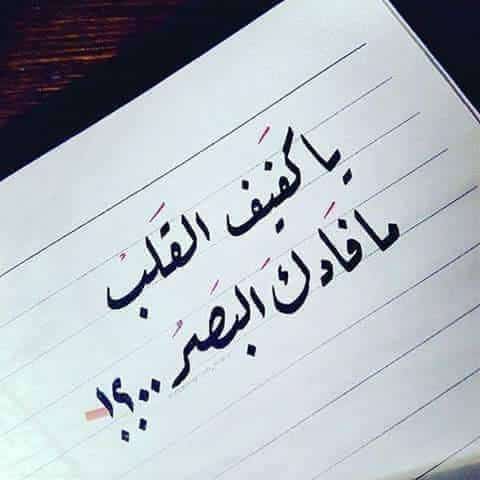 يا كفيف القَلَبْ
ما فادَك البَصَرُ ..؟!